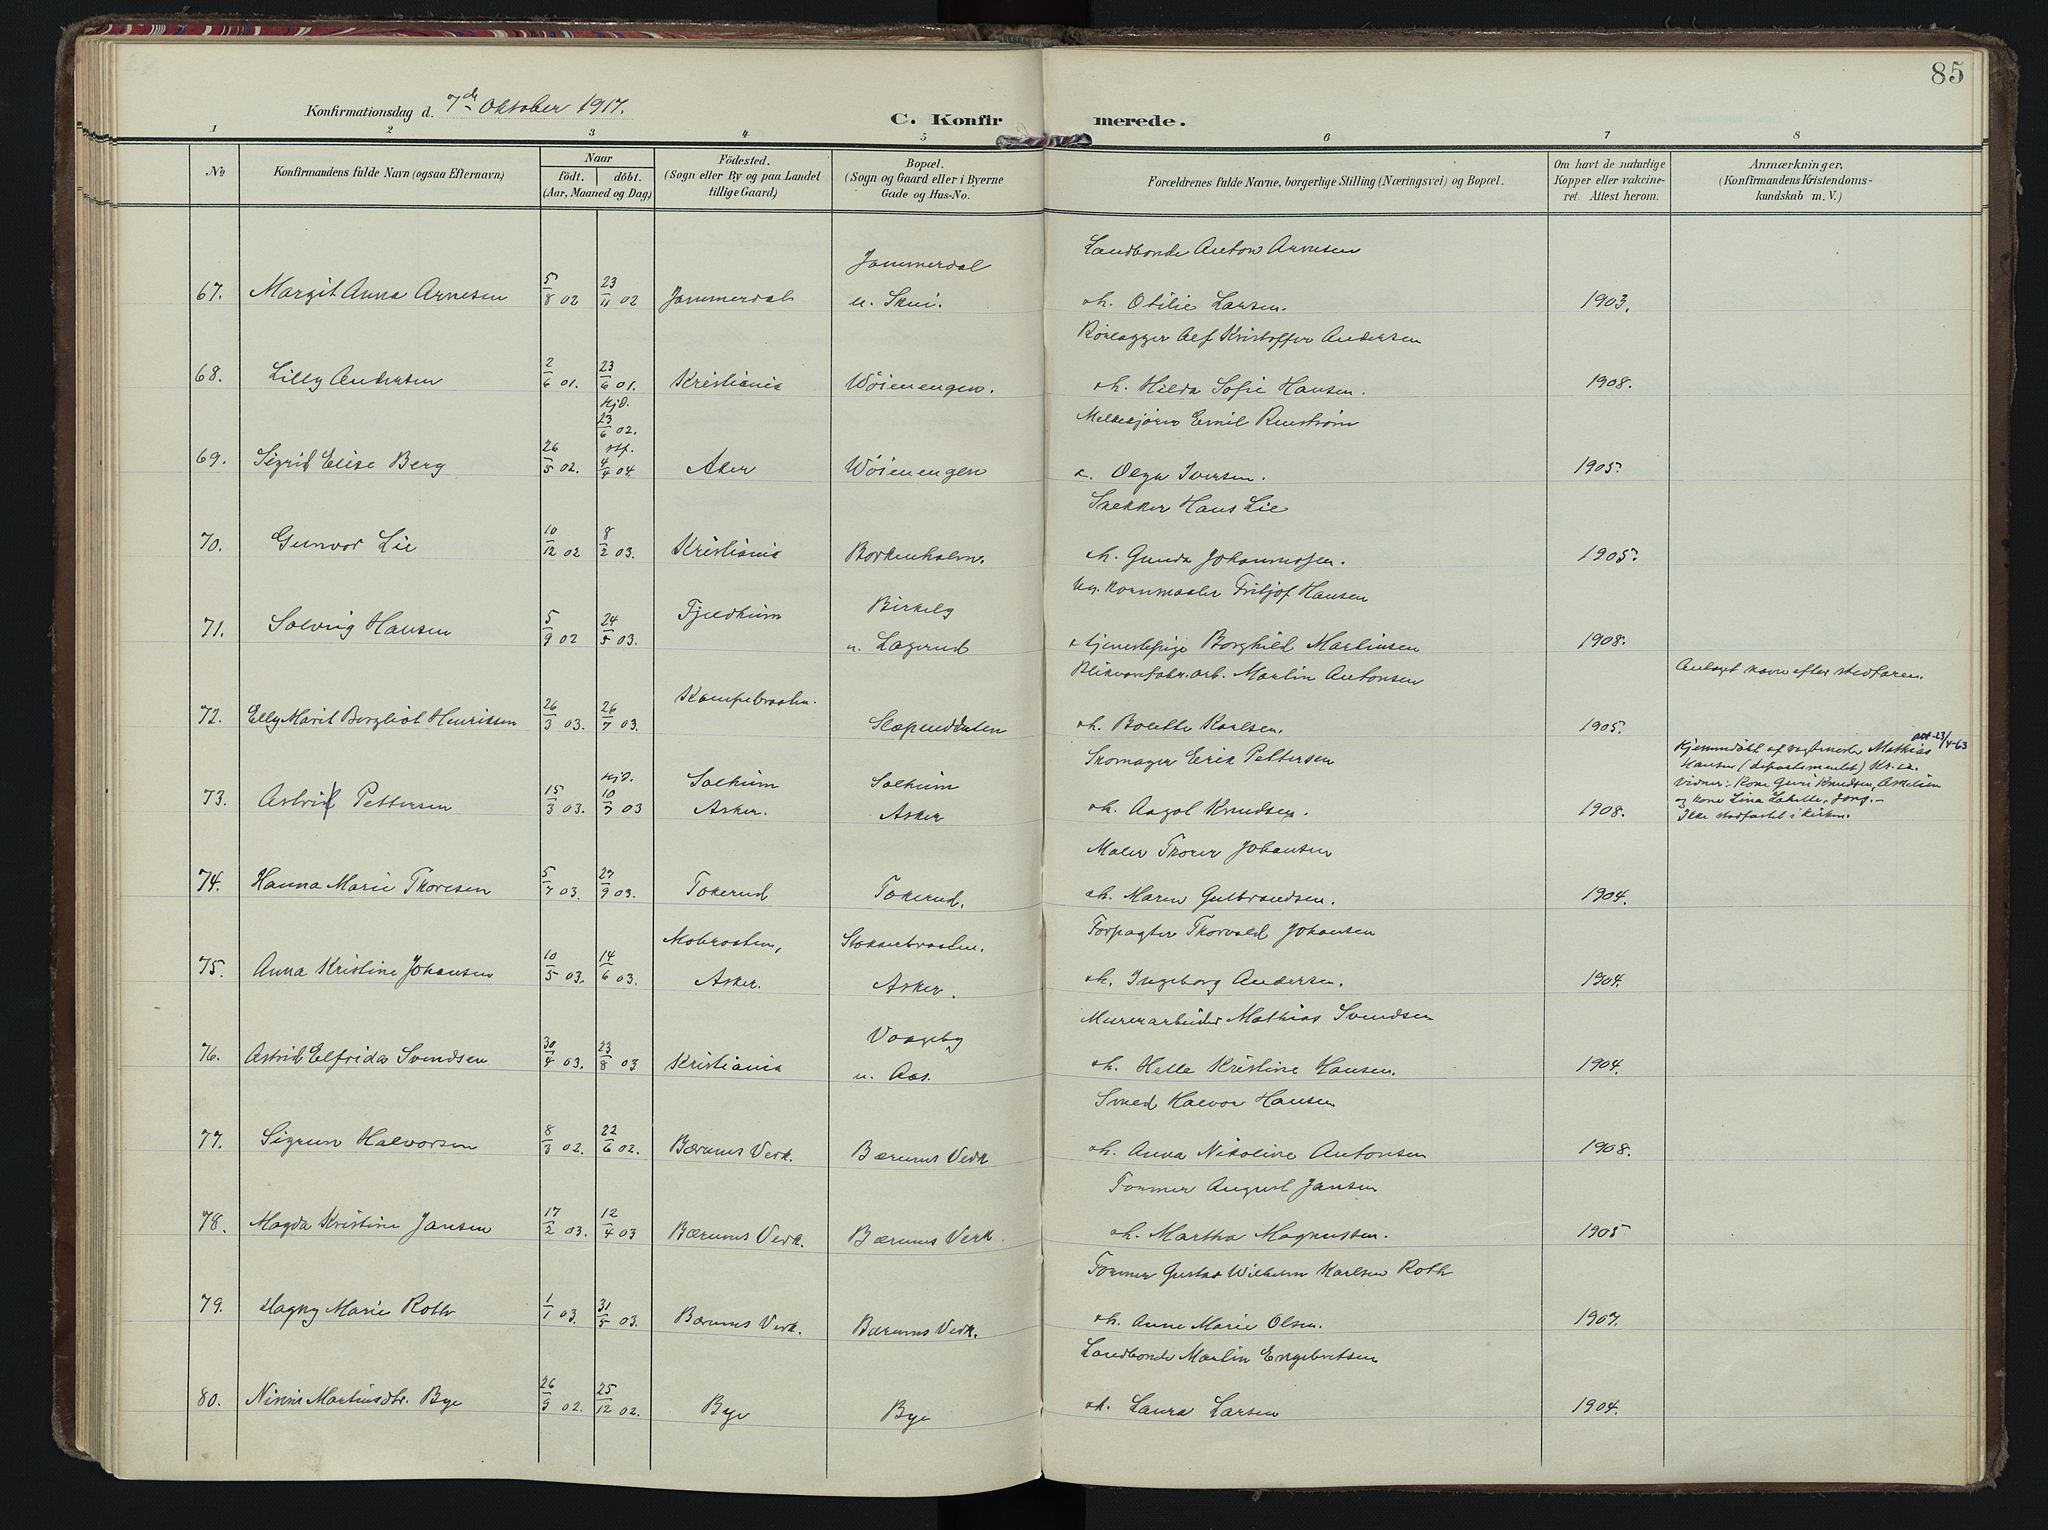 85
Konfirmationsdag d. 7de Oktober 1917.
C. Konfirmerede.
1 2 3 4 5 6 7 8
No
Konfirmandens fulde Navn (ogsaa Efternavn)
Naar
födt. döbt.
(Aar, Maaned og Dag)
Födested.
(Sogn eller By og paa Landet
tillige Gaard)
Bopæl.
(Sogn og Gaard eller i Byerne
Gade og Hus-No.
Forældrenes fulde Navne, borgerlige Stilling (Næringsvei) og Bopæl.
Om havt de naturlige
Kopper eller vakcine-
ret. Attest herom.
Anmærkninger,
(Konfirmandens Kristendoms-
kundskab m. V.)
Landbonde Anton Arnesen
67. Margit Anna Arnesen 5/8 02 23/11 02 Jammerdal Jammerdal u. Skui. o h. Otilie Larsen. 1903.
Rørlægger Alf Kristoffer Andersen
68. Lilly Andersen 2/6 01. 23/6 01. Kristiania Wöienengen. o h. Hilda Sofie Hansen. 1908.
Emil
69. Sigrid Elise Berg 26/5 02. Kjd. 23/6 02. stf. 4/4 04. Aker Wöienengen o. Olga Iversen. 1905.
Snekker Hans Lie
70. Gunvor Lie 10/12 02 8/2 03. Kristiania Borkenholm. o h. Gunda Johannessen. 1905.
Ug. Kornmaaler Fritjof Hansen
71. Solveig Hansen 5/9 02 24/5 03. Tjeldhum Birkely u. Løgerud o tjenestepige Borghild Martinsen 1908.
Blikvarefabr. arb. Martin Antonsen
Antaget navn efter stedfaren.
72. Elly Marit Bergliot Henriksen 26/3 03. 26/7 03. Kampebraaten. Slæpendbaten o h. Bolette Karlsen. 1905.
Skomager Erik Pettersen
Kjemmedöbt af vagtmester Mathias
Hansen (departementet) Kr.ia.
vidner: Kone Guri Knudsen, Askeladen
og kone Lina
Ikke stadfæstet i kirken.
73. Astrid Pettersen 15/3 03. Kjd. 10/7 03 Solhum Asker. Solhum Asker o h. Aagot Knudsen. 1908.
Maler Thorer Johansen
74. Hanna Marie Thoresen 5/7 03. 27/9 03. Tokerud Tokerud. o h. Maren Gulbrandsen. 1904.
Forpagter Thorvald Johansen
75. Anna Kristine Johansen 10/5 03. 14/6 03. Mobraaten, Asker. Stokkerbraaten. Asker. o h. Ingeborg Andersen. 1904.
Murerarbeider Mathias Svendsen
76. Astrid Elfrida Svendsen 30/4 03. 23/8 03 Kristiania Vaageby u. Aas. o h. Helle Kristine Hansen. 1904.
Smed Halvor Hansen
77. Sigrun Halvorsen 8/3 02. 22/6 02. Bærums Verk. Bærums Verk o h. Anna Nikoline Antonsen 1908.
Former August Jansen
78. Magda Kristine Jansen 17/2 03. 12/4 03 Bærums Verk. Bærums Verk. o h. Martha Magnussen. 1905
Former Gustav Wilhelm Karlsen Roth
79. Magny Marie Roth 1/1 03. 31/5 03. Bærums Verk. Bærums Verk. o h. Anne Marie Olsen. 1907.
Landbonde Martin Engebretsen
80. Ninni Martinsdtr. Bye 26/9 02. 25/12 02. Bye Bye o h. Laura Larsen 1904.